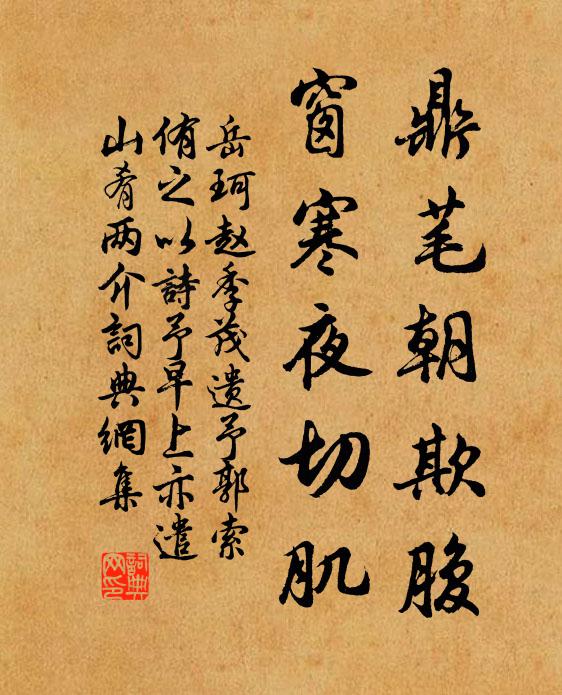 鼎芼朝欺腹
窗寒夜切肌
岳珂赵季茂遗予郭索
侑之以詩予早上亦遣
山肴两介詞典網集
詞典网印